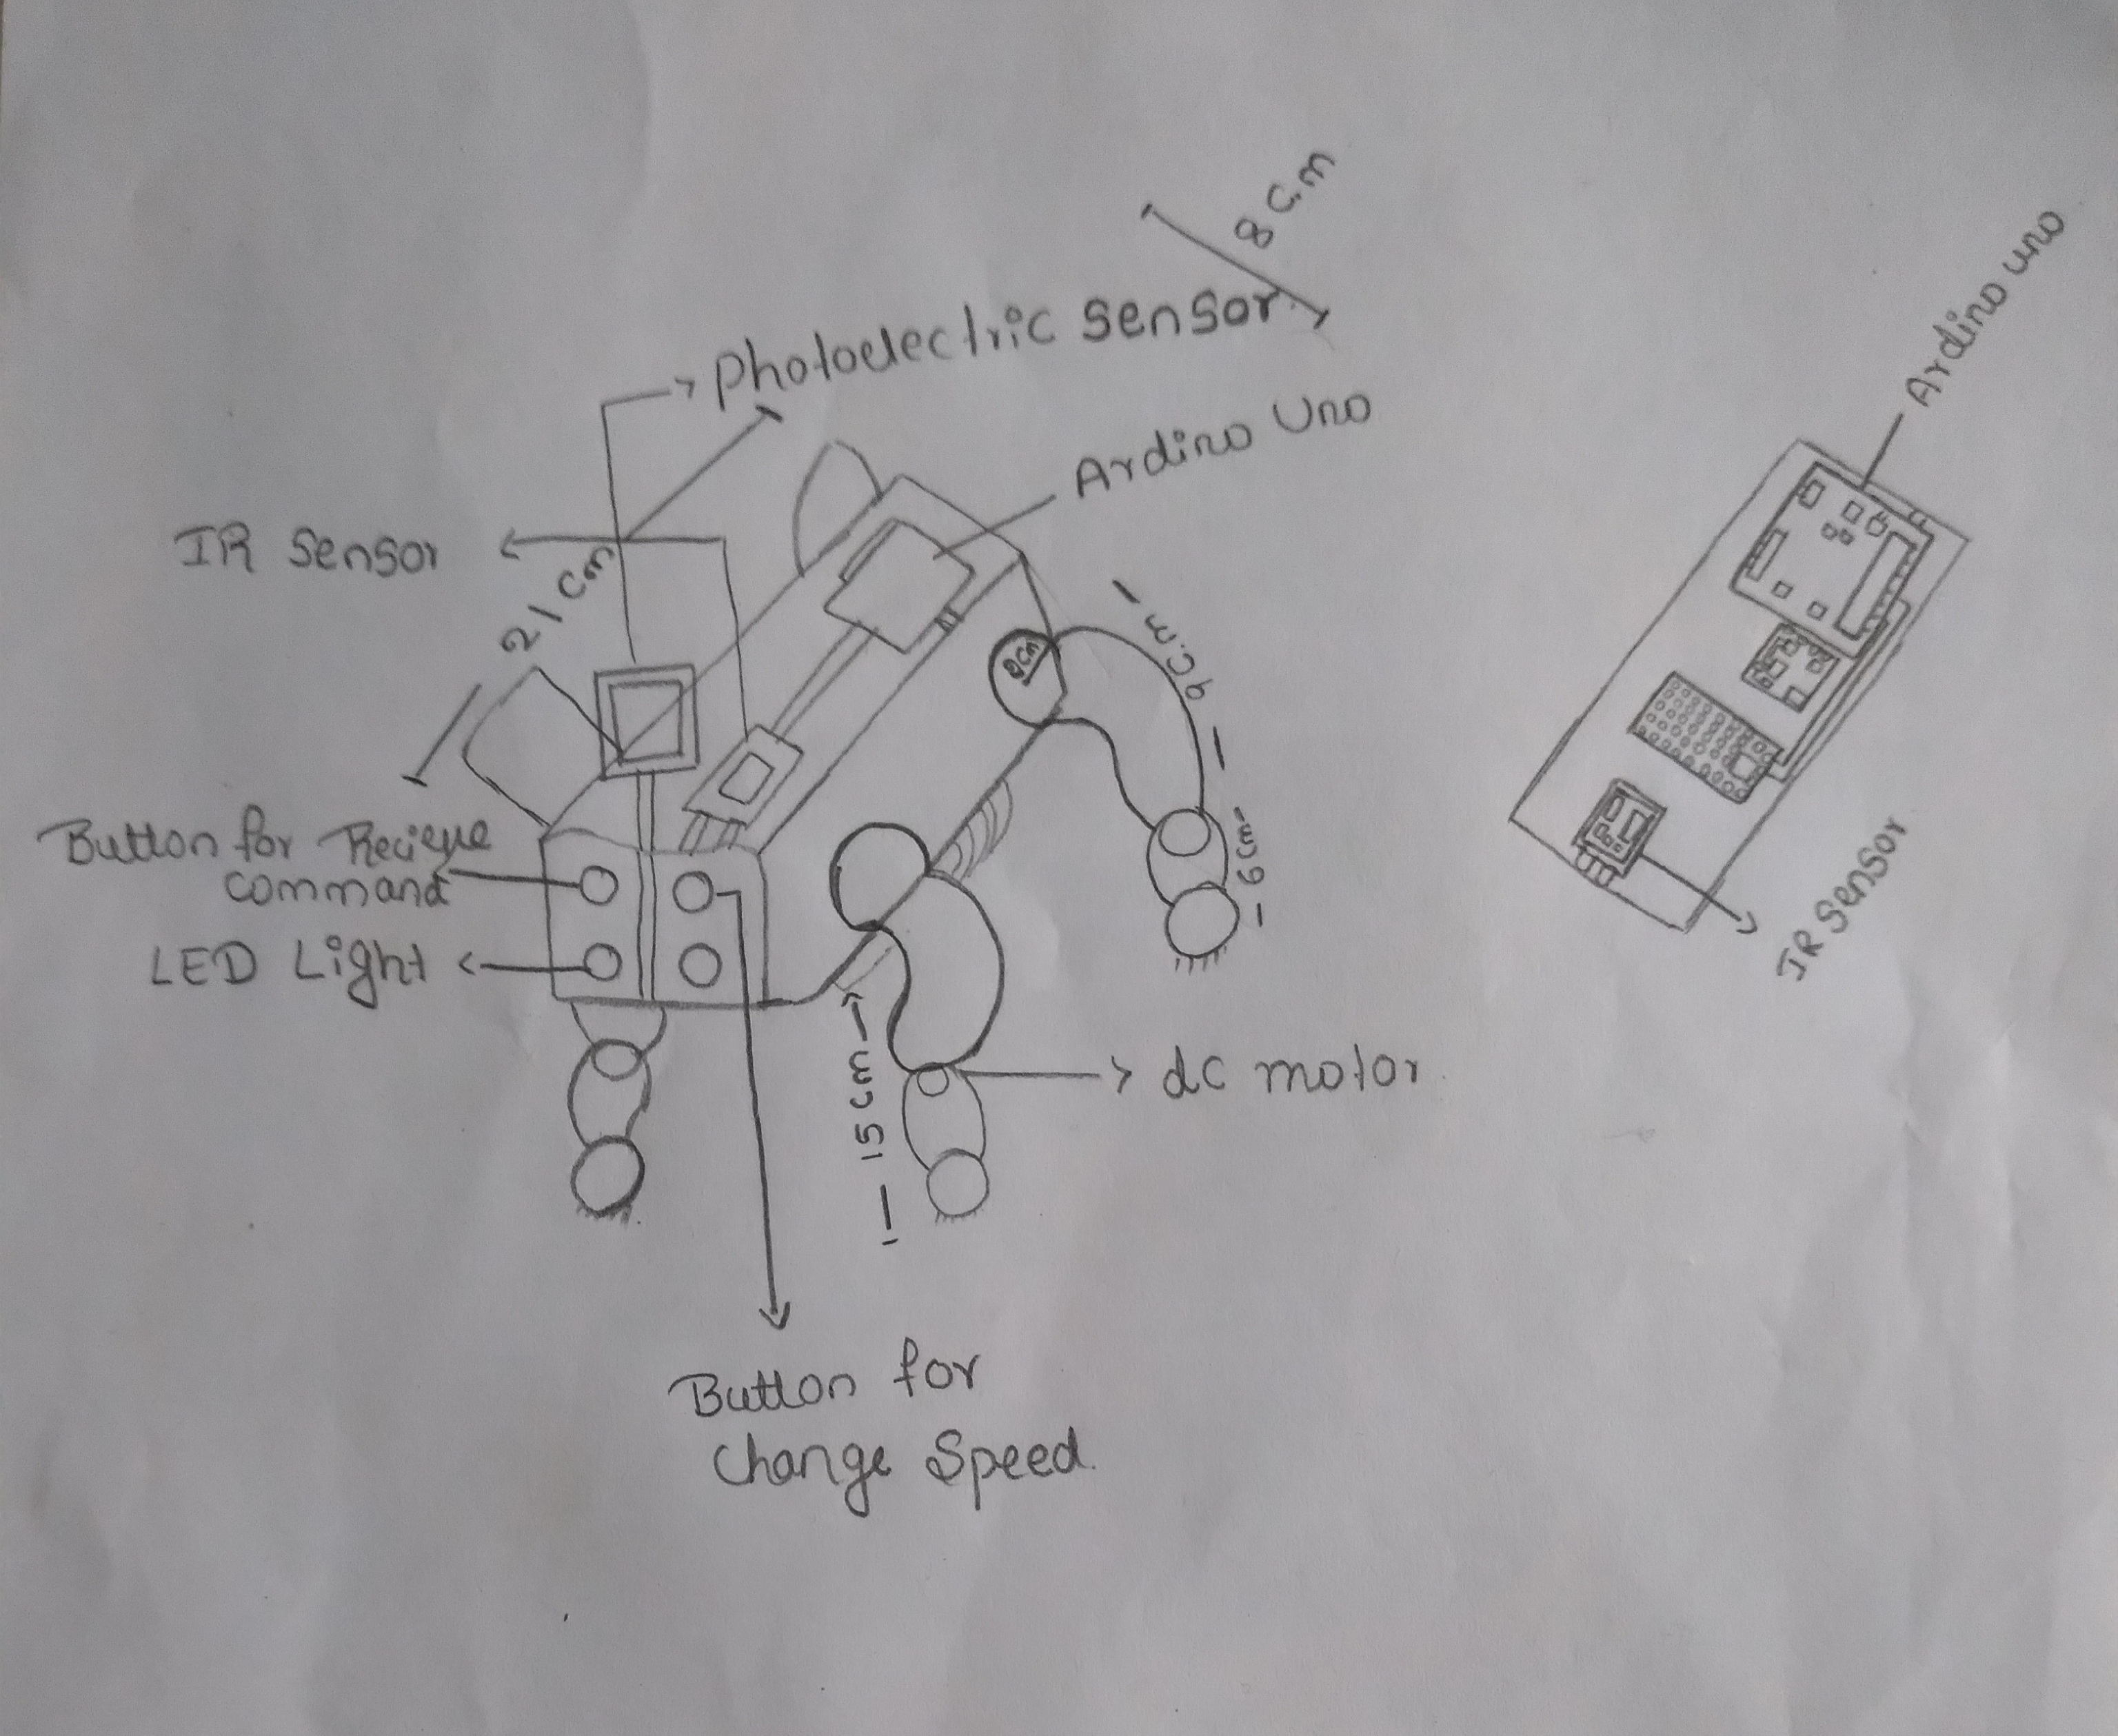 8 C.m
Photoelectric Sensor
Ardino Uno
IR Sensor
21 cm
9C.m
6cm
Button for Recieve
command
LED Light
15 cm
dc motor
Button for
change Speed.
Ardino uno
IR Sensor